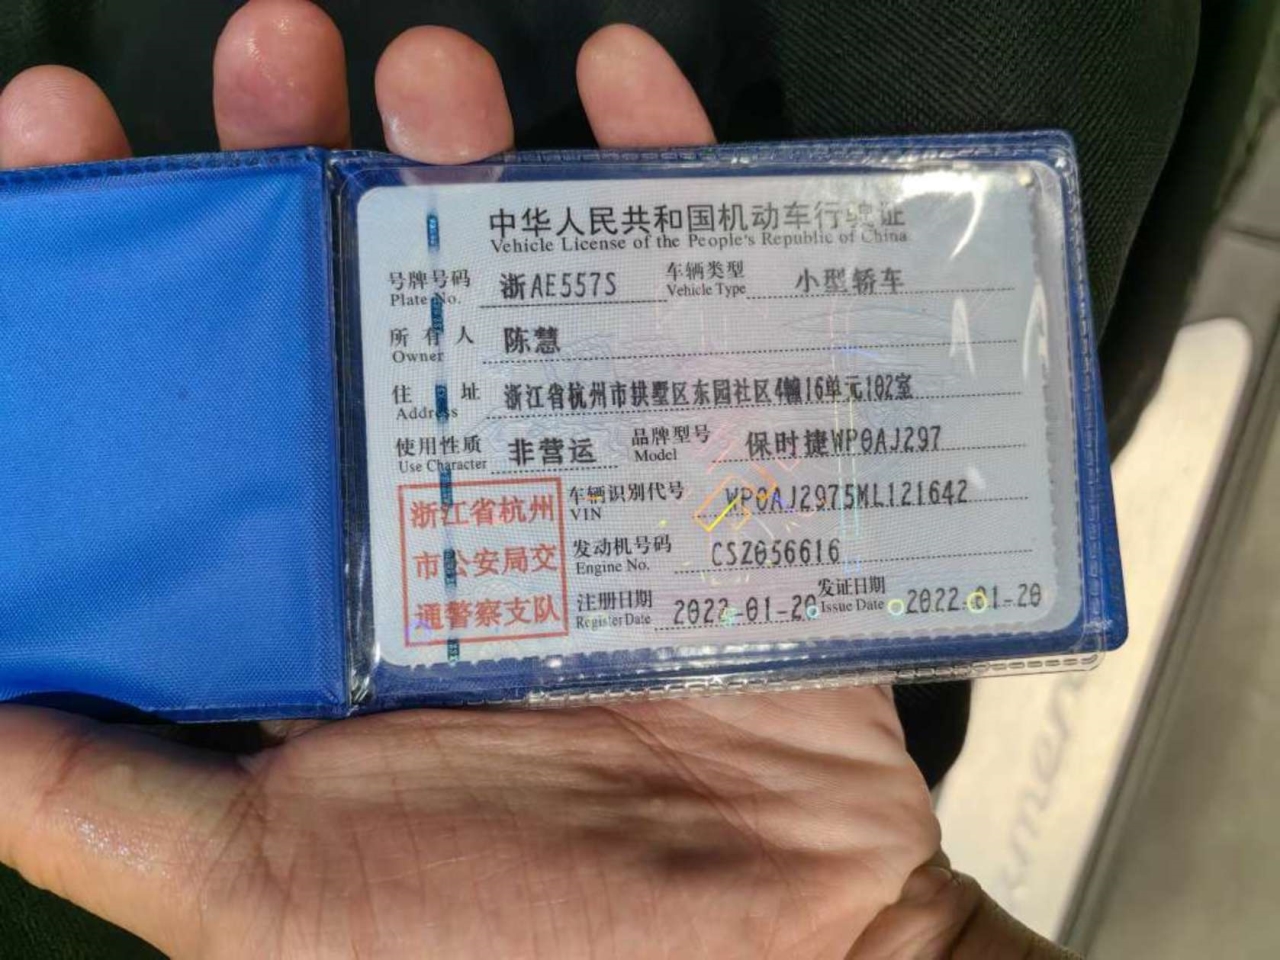 中华人民共和国机动车行驶证
Vehicle License of the People's Republic of China
号牌号码 浙AE557S 车辆类型 小型轿车
Plate No. Vehicle Type
所有人 陈慧
Owner
住址 浙江省杭州市拱墅区东园社区4幢16单元102室
Address
使用性质 非营运 品牌型号 保时捷WP0AJ297
Use Character Model
车辆识别代号 WP0AJ2975ML121642
VIN
发动机号码 CSZ056616
Engine No.
注册日期 2022-01-20 发证日期 2022-01-20
Register Date Issue Date
浙江省杭州
市公安局交
通警察支队